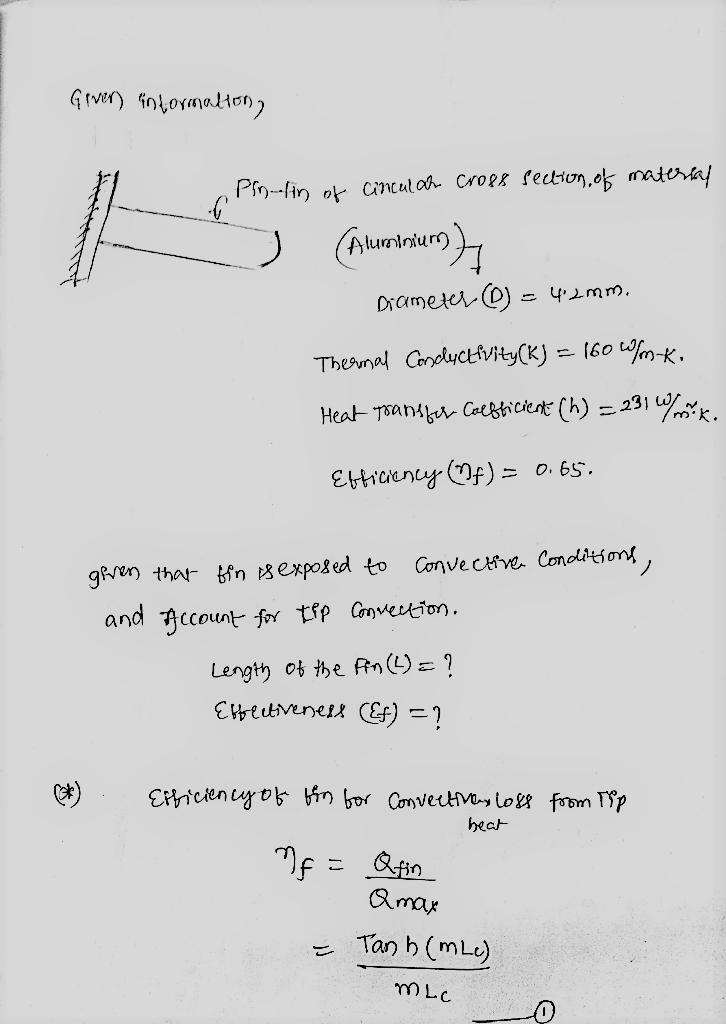 Given information,
Pin-fin of circular cross section, of material
(Aluminium)
Diameter (D) = 4.2mm.
Thermal Conductivity(K) = 160 W/m-K.
Heat Transfer Coefficient (h) = 231 W/m².K.
Efficiency (ηf) = 0.65.
given that fin is exposed to Convective Conditions,
and Account for tip Convection.
Length of the Fin (L) = ?
Effectiveness (Ef) = ?
(*) Efficiency of fin for Convective heat loss from Tip
ηf = Qfin / Qmax
= Tan h (mLc) / mLc
①